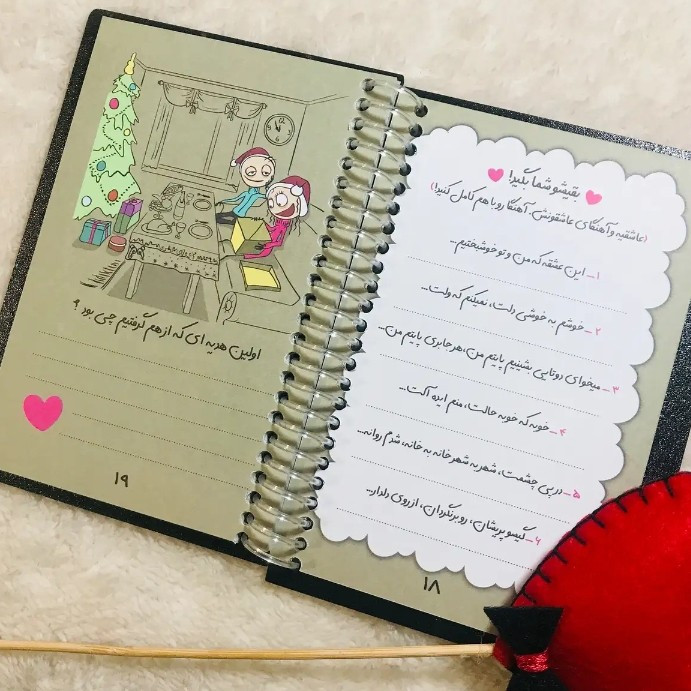 بقیشو شما بگید!
(عاشقیه و آهنگای عاشقونش، آهنگا رو با هم کامل کنید!)
۱_ این عشقه که من و تو خوشبختیم...
۲_ خوشم به خوشی دلت، نمیکنم که ولت...
۳_ میخوای دوتایی بشینیم پاینم من، هر جا بری پاینم من...
۴_ خوبه که خوبه حالت، منم ایده آلت...
۵_ در پی چشمت، شهر به شهر خانه به خانه، شدم روانه...
۶_ گیسو پریشان، رو برنگردان، از روی دلدار...
۱۸
اولین هدیه ای که از هم گرفتیم چی بود ؟
۱۹